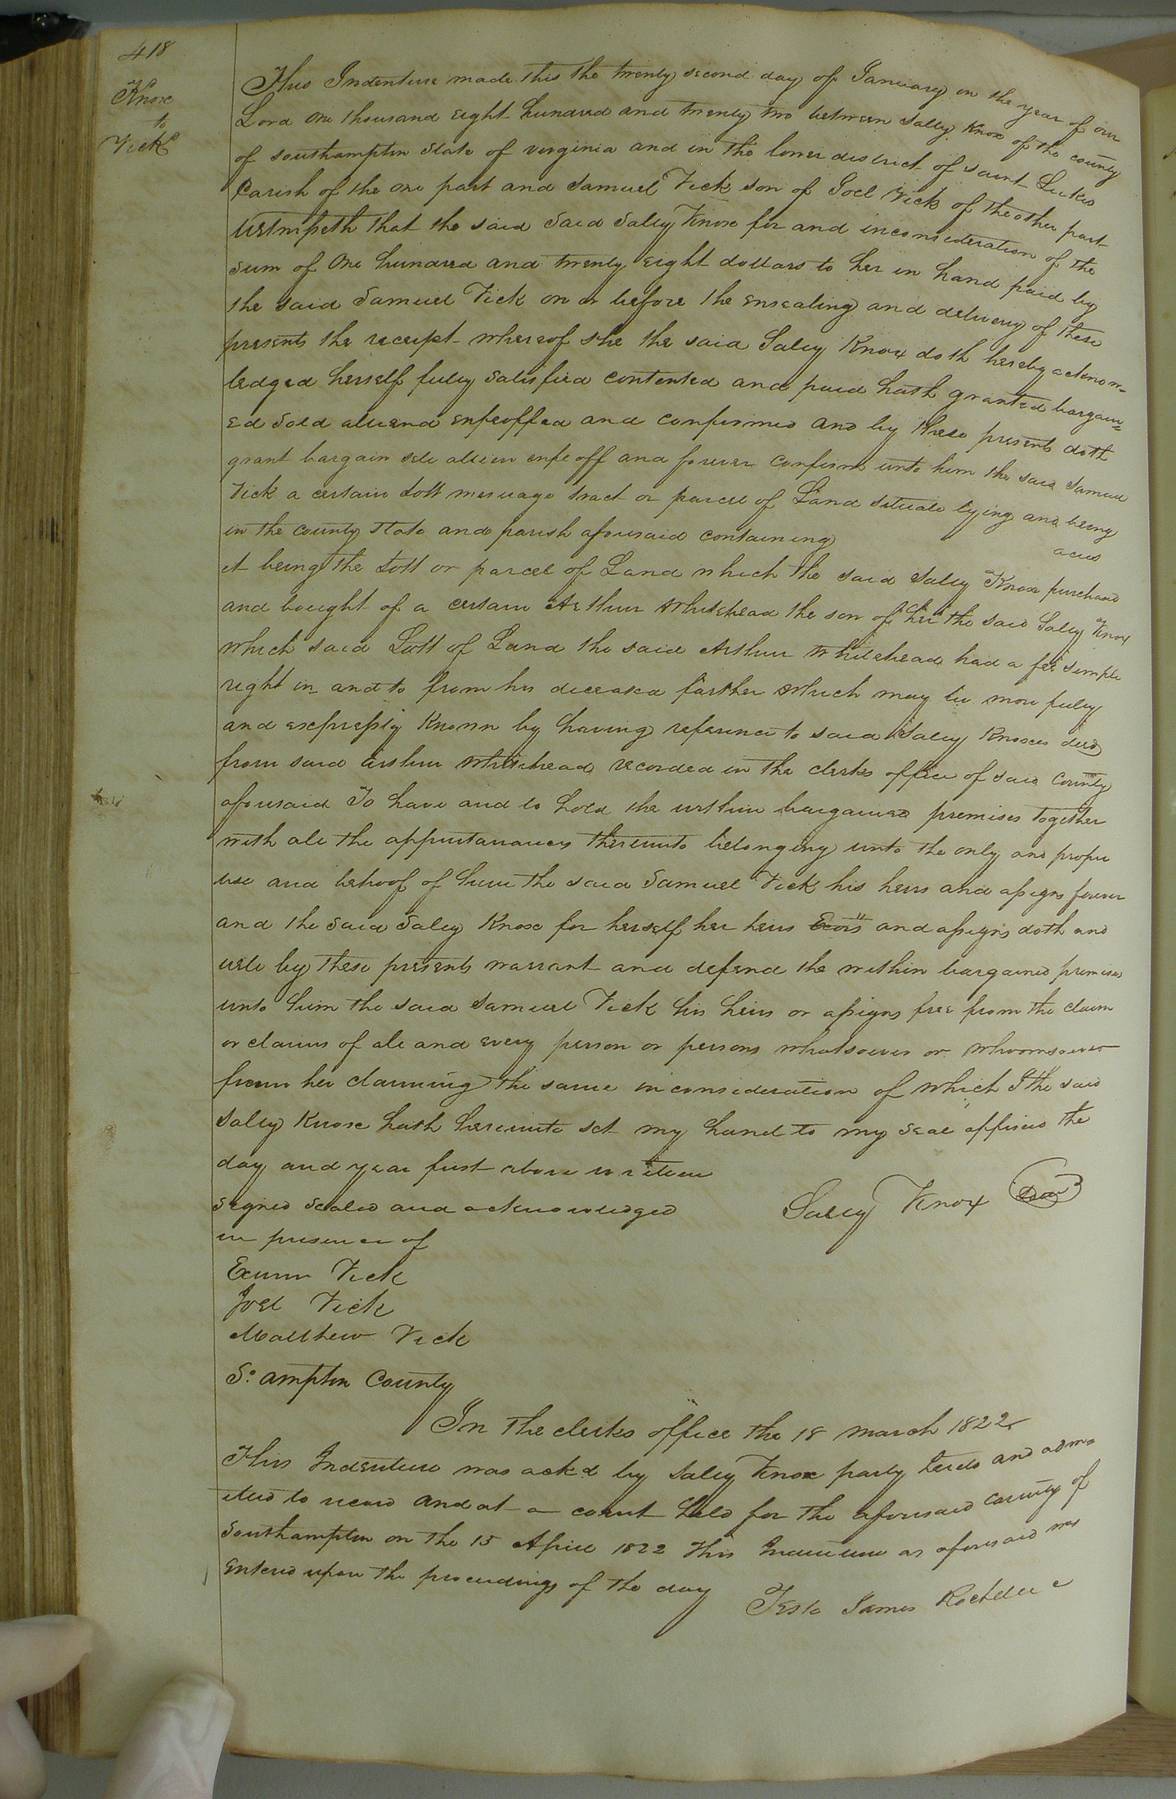 418
Knox
to
Vick
This Indenture made this the twenty second day of January in the year of our
Lord one thousand eight hundred and twenty two between Sally Knox of the county
of Southampton State of virginia and in the lower district of Saint Lukes
Parish of the one part and Samuel Vick son of Joel Vick of the other part
Witnesseth that the said said Sally Knox for and inconsideration of the
sum of One hundred and twenty eight dollars to her in hand paid by
the said Samuel Vick on or before the ensealing and delivery of these
presents the receipt whereof she the said Sally Knox doth hereby acknow-
ledged herself fully Satisfied contented and paid hath granted bargain=
ed Sold aliend enfeoffed and confirmed and by these presents doth
grant bargain sele alien enfeoff and forever confirm unto him the said Samuel
Vick a certain Lott mesuage tract or parcel of Land situate lying and being
in the county State and parish aforesaid containing acres
it being the Lott or parcel of Land which the said Sally Knox purchased
and bought of a certain Arthur Whitehead the son of her the said Sally Knox
which said Lott of Land the said Arthur Whitehead had a fee simple
right in and to from his deceased farther which may be more fully
and expressly Known by having reference to said Sally Knoxes deed
from said Arthur Whitehead recorded in the clerks office of said County
aforesaid To have and to hold the within bargained premises together
with all the appurtanances thereunto belonging unto the only and proper
use and behoof of him the said Samuel Vick his heirs and assigns forever
and the said Sally Knox for herself her heirs Exors and assigns doth and
will by these presents warrant and defend the within bargained premises
unto him the said Samuel Vick his heirs or assigns free from the claim
or claims of all and every person or persons whatsoever or whoomsoever
from her claiming the same inconsideration of which I the said
Sally Knox hath hereunto set my hand to my seal affixed the
day and year first above written
Signed Sealed and acknowledged
in presence of
Sally Knox Seal
Exum Vick
Joel Vick
Matthew Vick
So: ampton County
In the clerks office the 18 march 1822
This Indenture was ackd by Sally Knox party hereto and adm-
itted to record and at a court held for the aforesaid county of
Southampton on the 15 April 1822 This Indenture as aforesaid was
entered upon the proceedings of the day
Teste James Rochelle c